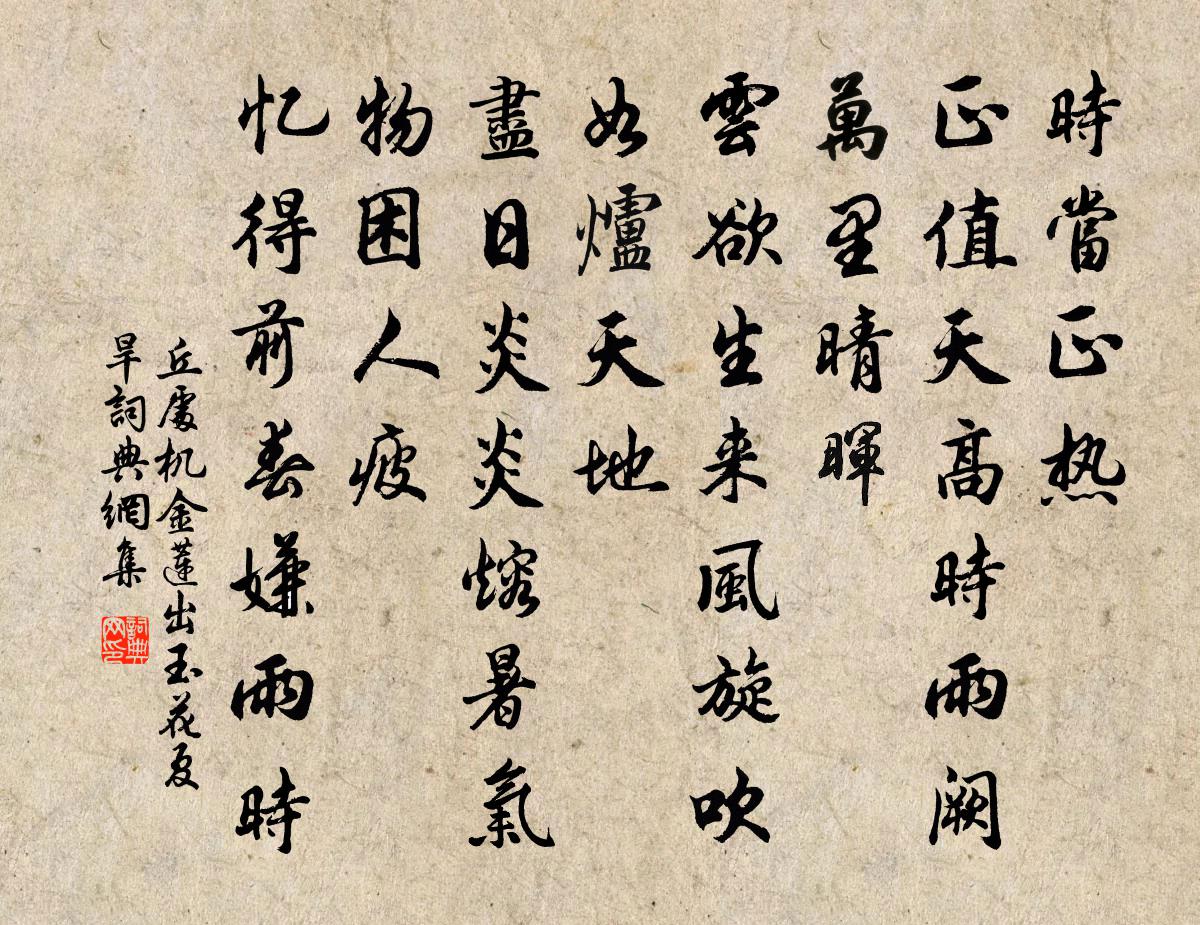 時當正热
正值天高時雨阙
萬里晴暉
雲欲生来風旋吹
如爐天地
盡日炎炎熔暑氣
物困人疲
忆得前春嫌雨時
丘處机金蓮出玉花夏
旱詞典網集
詞典
网印